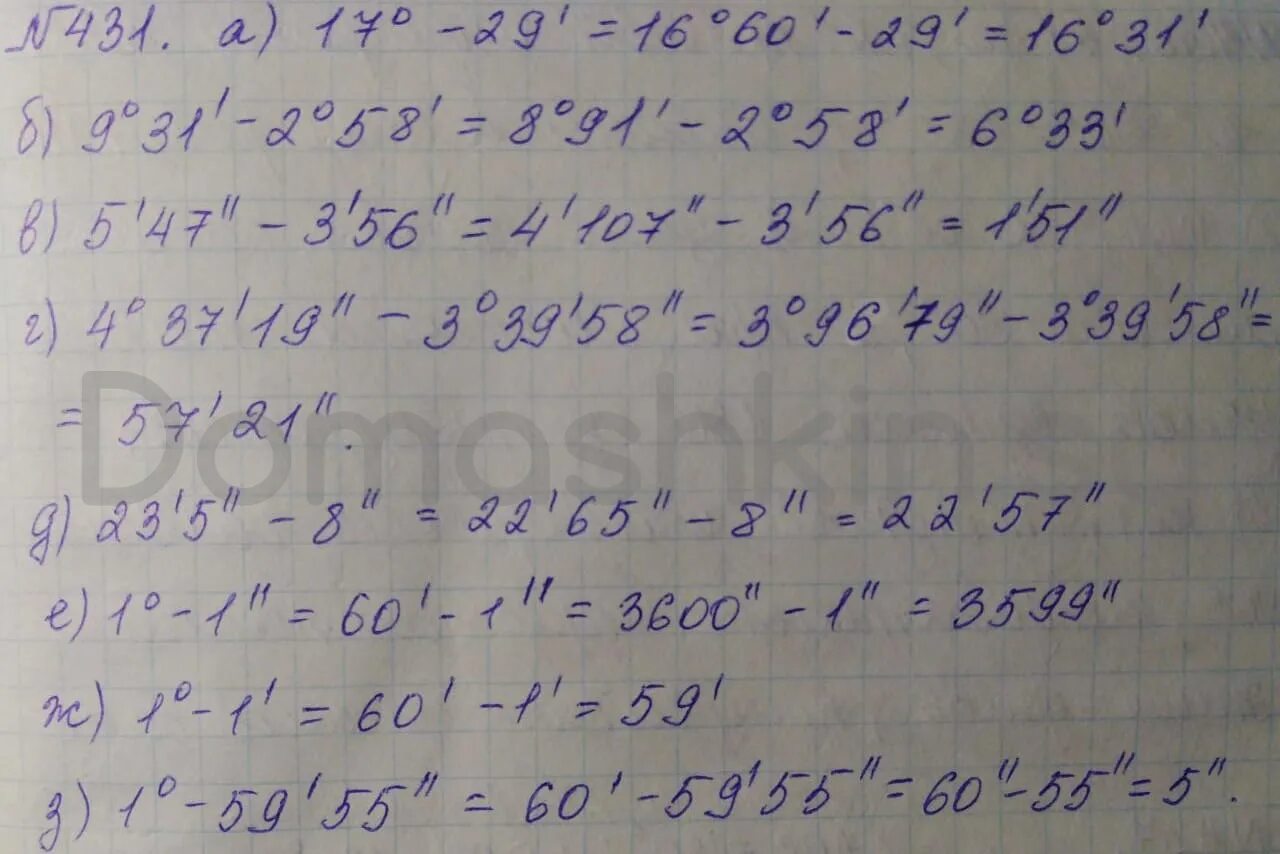 №431. а) 17° - 29' = 16°60' - 29' = 16°31'
б) 9°31' - 2°58' = 8°91' - 2°58' = 6°33'
в) 5'47" - 3'56" = 4'107" - 3'56" = 1'51"
г) 4°37'19" - 3°39'58" = 3°96'79" - 3°39'58" =
= 57'21".
Domashkin
д) 23'5" - 8" = 22'65" - 8" = 22'57"
е) 1° - 1" = 60' - 1" = 3600" - 1" = 3599"
ж) 1° - 1' = 60' - 1' = 59'
з) 1° - 59'55" = 60' - 59'55" = 60" - 55" = 5".